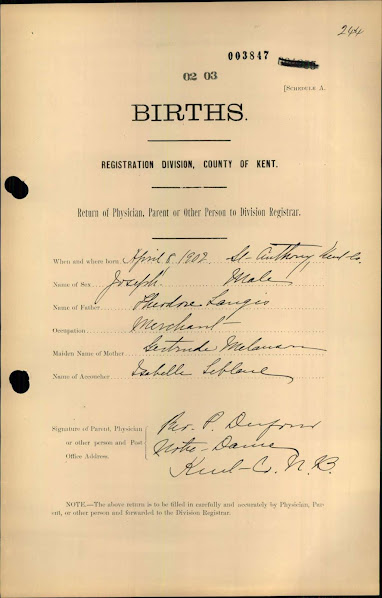 244
003847
02 03
[SCHEDULE A.
BIRTHS.
REGISTRATION DIVISION, COUNTY OF KENT.
Return of Physician, Parent or Other Person to Division Registrar.
When and where born April 8, 1902 St-Anthony, Kent-Co.
Name of Sex Joseph Male
Name of Father Theodore Langis
Occupation Merchant
Maiden Name of Mother Gertrude Melanson
Name of Accoucher Isabelle Leblanc
Signature of Parent, Physician
or other person and Post
Office Address.
P.
Notre-Dame
Kent-Co. N.B.
NOTE.—The above return is to be filled in carefully and accurately by Physician, Par-
ent, or other person and forwarded to the Division Registrar.